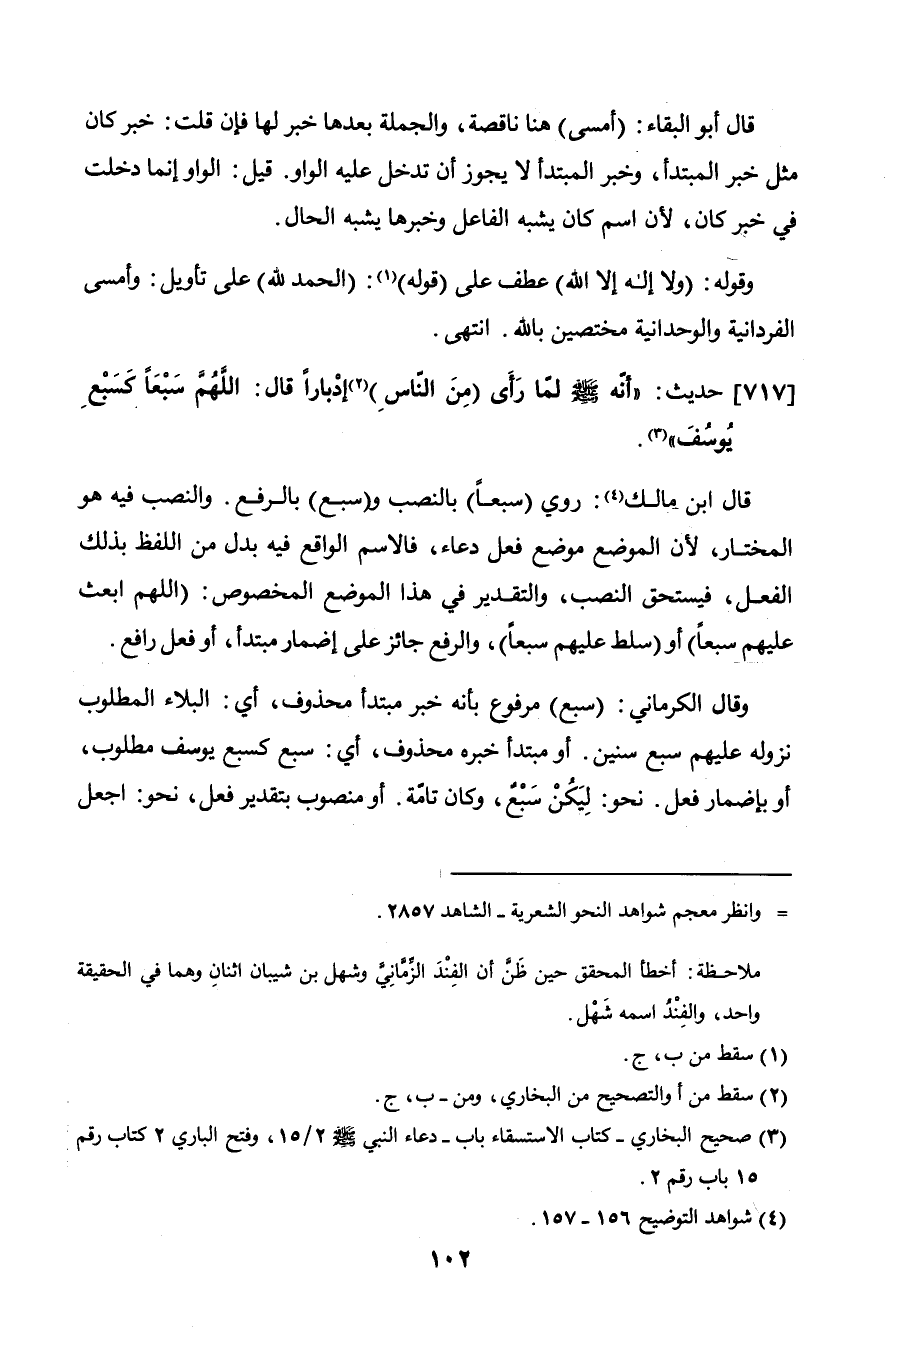 قال أبو البقاء: (أمسى) هنا ناقصة، والجملة بعدها خبر لها فإن قلت: خبر كان
مثل خبر المبتدأ، وخبر المبتدأ لا يجوز أن تدخل عليه الواو. قيل: الواو إنما دخلت
في خبر كان، لأن اسم كان يشبه الفاعل وخبرها يشبه الحال.
وقوله: (ولا إله إلا الله) عطف على (قوله)(١): (الحمد لله) على تأويل: وأمسى
الفردانية والوحدانية مختصين بالله. انتهى.
[٧١٧] حديث: «أنّه ﷺ لمّا رَأَى (مِنَ النّاسِ)(٢)إدْباراً قال: اللَّهُمَّ سَبْعَاً كَسَبْعِ
يُوسُفَ»(٣).
قال ابن مالك(٤): روي (سبعاً) بالنصب و(سبع) بالرفع. والنصب فيه هو
المختار، لأن الموضع موضع فعل دعاء، فالاسم الواقع فيه بدل من اللفظ بذلك
الفعل، فيستحق النصب، والتقدير في هذا الموضع المخصوص: (اللهم ابعث
عليهم سبعاً) أو (سلط عليهم سبعاً)، والرفع جائز على إضمار مبتدأ، أو فعل رافع.
وقال الكرماني: (سبع) مرفوع بأنه خبر مبتدأ محذوف، أي: البلاء المطلوب
نزوله عليهم سبع سنين. أو مبتدأ خبره محذوف، أي: سبع كسبع يوسف مطلوب،
أو بإضمار فعل. نحو: لِيَكُنْ سَبْعٌ، وكان تامّة. أو منصوب بتقدير فعل، نحو: اجعل
= وانظر معجم شواهد النحو الشعرية ـ الشاهد ٢٨٥٧.
ملاحظة: أخطأ المحقق حين ظَنَّ أن الفِنْدَ الزِّمَّانِيَّ وشهل بن شيبان اثنانِ وهما في الحقيقة
واحد، والفِنْدُ اسمه شَهْل.
(١) سقط من ب، ج.
(٢) سقط من أ والتصحيح من البخاري، ومن ـ ب، ج.
(٣) صحيح البخاري ـ كتاب الاستسقاء باب ـ دعاء النبي ﷺ ١٥/٢، وفتح الباري ٢ كتاب رقم
١٥ باب رقم ٢.
(٤) شواهد التوضيح ١٥٦ ـ ١٥٧.
١٠٢